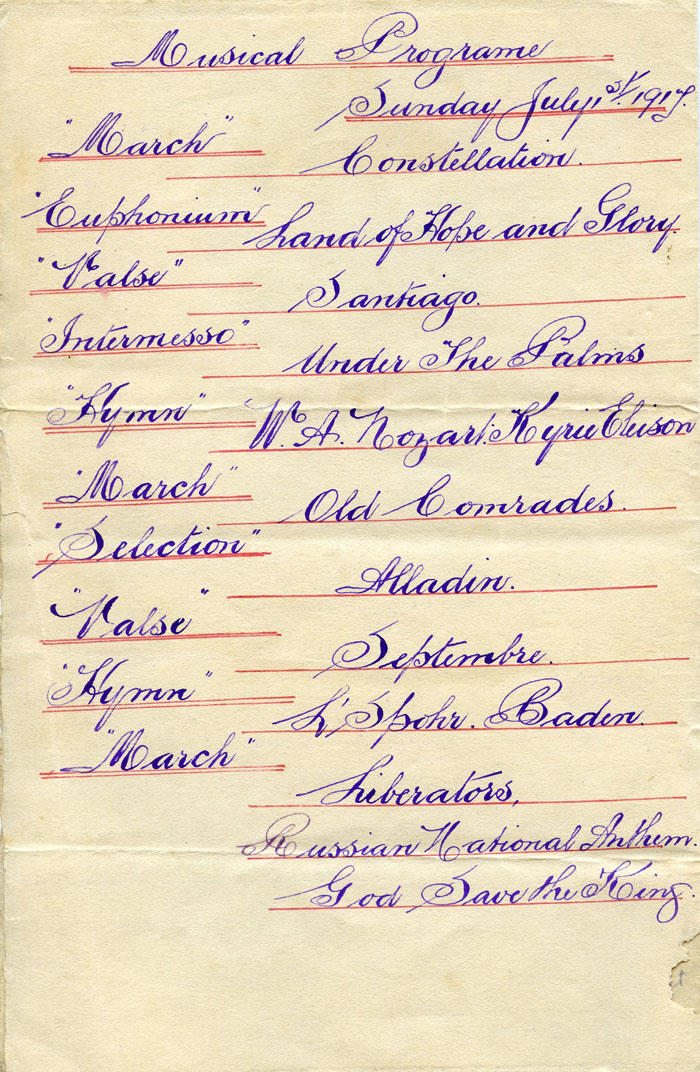 Musical Programe
Sunday July 1st. 1917.
"March" Constellation.
"Euphonium" Land of Hope and Glory.
"Valse" Santiago.
"Intermesso" Under The Palms
"Hymn" W. A. Mozart. Kyrie Eleison
"March" Old Comrades.
"Selection" Alladin.
"Valse" Septembre.
"Hymn" L' Spohr. Baden.
"March" Liberators,
Russian National Anthem.
God Save the King.